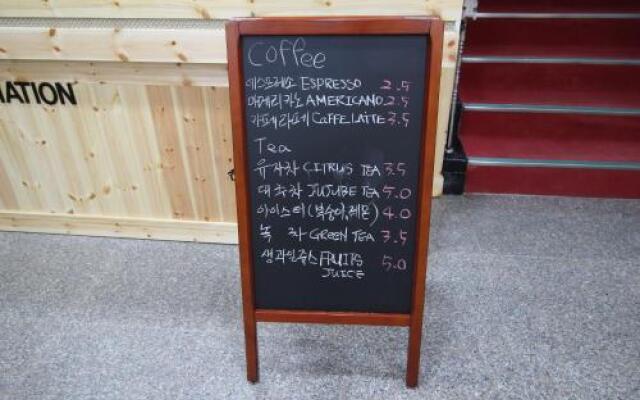 MATION
Coffee
에스프레소 ESPRESSO 2.5
아메리카노 AMERICANO 2.5
카페라떼 CAFFE LATTE 3.5
Tea
유자차 CITRUS TEA 3.5
대추차 JUJUBE TEA 5.0
아이스티(복숭아,레몬) 4.0
녹 차 GREEN TEA 3.5
생과일쥬스 FRUITS 5.0
JUICE